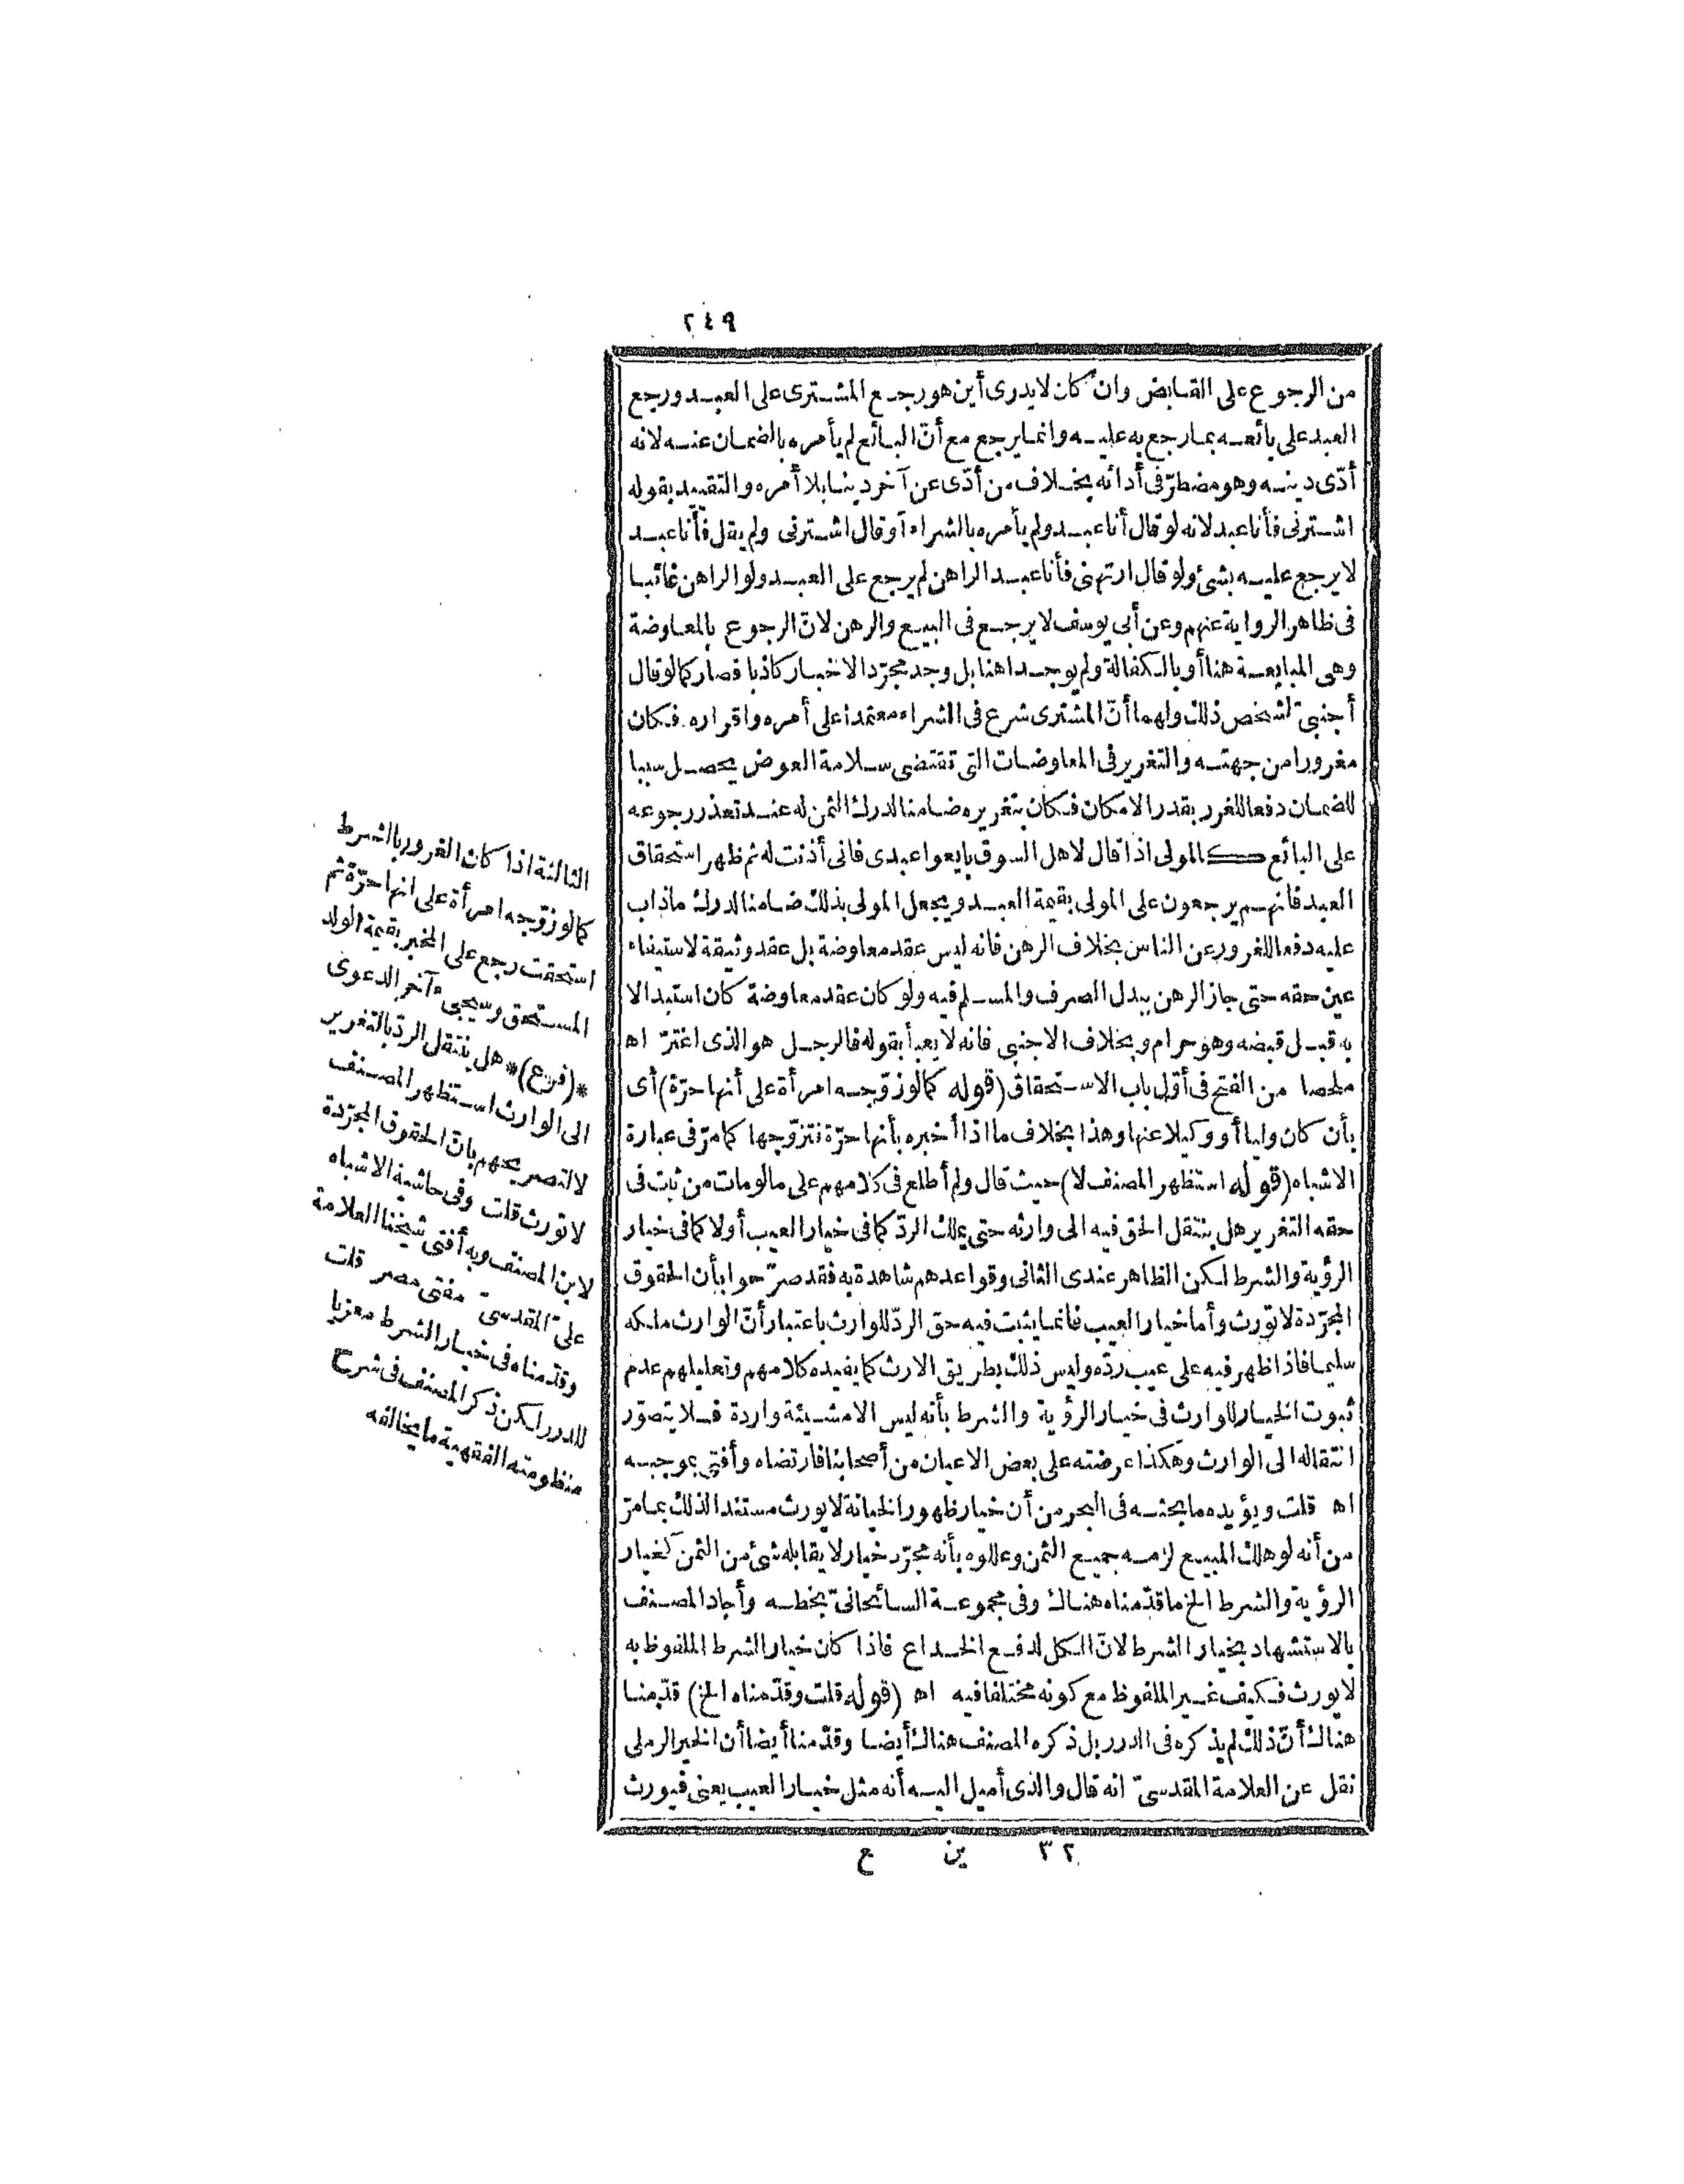 ٢٤٩
من الرجوع على القابض وان كان لايدرى أين هو رجع المشترى على العبد ورجع
العبد على بائعه بما رجع به عليه وانما يرجع مع أنّ البائع لم يأمره بالضمان عنه لانه
أدّى دينه وهو مضطرّ فى أدائه بخلاف من أدّى عن آخر دينا بلا أمره والتقييد بقوله
اشترنى فأنا عبد لانه لو قال أنا عبد ولم يأمره بالشراء أو قال اشترنى ولم يقل فأنا عبد
لا يرجع عليه بشئ ولو قال ارتهنى فأنا عبد الراهن لم يرجع على العبد ولو الراهن غائبا
فى ظاهر الرواية عنهم وعن أبى يوسف لا يرجع فى البيع والرهن لانّ الرجوع بالمعاوضة
وهى المبايعة هنا أو بالكفالة ولم يوجدا هنا بل وجد مجرّد الاخبار كاذبا فصار كما لو قال
أجنبىّ لشخص ذلك ولهما أنّ المشترى شرع فى الشراء معتمدا على أمره واقراره فكان
مغرورا من جهته والتغرير فى المعاوضات التى تقتضى سلامة العوض يحصل سببا
للضمان دفعا للغرر بقدر الامكان فكان بتغريره ضامنا لدرك الثمن له عند تعذر رجوعه
على البائع كالمولى اذا قال لاهل السوق بايعوا عبدى فانى أذنت له ثم ظهر استحقاق
العبد فانهم يرجعون على المولى بقيمة العبد ويجعل المولى بذلك ضامنا لدرك ماذاب
عليه دفعا للغرور عن الناس بخلاف الرهن فانه ليس عقد معاوضة بل عقد وثيقة لاستيفاء
عين حقه حتى جاز الرهن ببدل الصرف والمسلم فيه ولو كان عقد معاوضة كان استبدالا
به قبل قبضه وهو حرام وبخلاف الاجنبى فانه لا يعبأ بقوله فالرجل هو الذى اغترّ اه
ملخصا من الفتح فى أوّل باب الاستحقاق (قوله كما لو زوّجه امرأة على أنها حرّة) أى
بأن كان وليا أو وكيلا عنها وهذا بخلاف ما اذا أخبره بأنها حرّة فتزوّجها كما مرّ فى عبارة
الاشباه (قوله استظهر المصنف لا) حيث قال ولم أطلع فى كلامهم على مالومات من ثبت فى
حقه التغرير هل ينتقل الحق فيه الى وارثه حتى يملك الردّ كما فى خيار العيب أولا كما فى خيار
الرؤية والشرط لكن الظاهر عندى الثانى وقواعدهم شاهدة به فقد صرّحوا بأن الحقوق
المجرّدة لا تورث وأما خيار العيب فانما يثبت فيه حق الردّ للوارث باعتبار أنّ الوارث ملكه
سليما فاذا ظهر فيه على عيب ردّه وليس ذلك بطريق الارث كما يفيده كلامهم وتعليلهم عدم
ثبوت الخيار للوارث فى خيار الرؤية والشرط بأنه ليس الا مشيئة وارادة فلا يتصوّر
انتقاله الى الوارث وهكذا عرضته على بعض الاعيان من أصحابنا فارتضاه وأفتى بموجبه
اه قلت ويؤيده ما بحثه فى البحر من أن خيار ظهور الخيانة لا يورث مستندا لذلك بما مرّ
من أنه لو هلك المبيع لزمه جميع الثمن وعللوه بأنه مجرّد خيار لا يقابله شئ من الثمن كخيار
الرؤية والشرط الخ ما قدّمناه هناك وفى مجموعة السائحانىّ بخطه وأجاد المصنف
بالاستشهاد بخيار الشرط لانّ الكل لدفع الخداع فاذا كان خيار الشرط الملفوظ به
لا يورث فكيف غير الملفوظ مع كونه مختلفا فيه اه (قوله قلت وقدّمناه الخ) قدّمنا
هناك أنّ ذلك لم يذكره فى الدرر بل ذكره المصنف هناك أيضا وقدّمنا أيضا أن الخير الرملى
نقل عن العلامة المقدسىّ انه قال والذى أميل اليه أنه مثل خيار العيب يعنى فيورث
٣٢ ين ع
الثالثة اذا كان الغرور بالشرط
كما لو زوّجه امرأة على انها حرّة ثم
استحقت رجع على المخبر بقيمة الولد
المستحق وسيجىء آخر الدعوى
*(فرع)* هل ينتقل الردّ بالتغرير
الى الوارث استظهر المصنف
لا لتصريحهم بانّ الحقوق المجرّدة
لا تورث قلت وفى حاشية الاشباه
لابن المصنف وبه أفتى شيخنا العلامة
علىّ المقدسىّ مفتى مصر قلت
وقدّمناه فى خيار الشرط معزيا
للدرر لكن ذكر المصنف فى شرح
منظومته الفقهية ما يخالفه